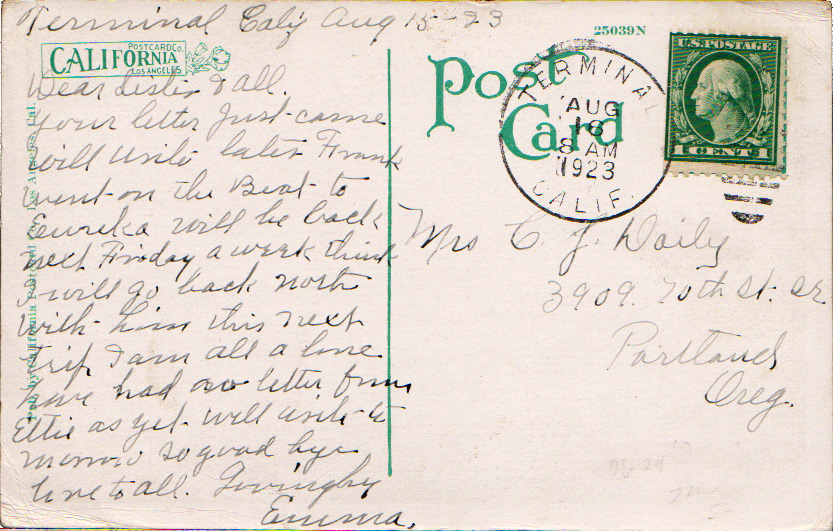 Terminal Calif Aug 15-23
25039N
POSTCARD CO.
CALIFORNIA
LOS ANGELES
Post Card
U.S. POSTAGE
1 CENT 1
TERMINAL
AUG
16
8 AM
1923
CALIF.
Dear Sister & all.
Your letter just came
will write later Frank
went on the Boat to
Eureka will be back
next Friday a week think
I will go back north
with him this next
trip I am all a lone
have had no letter from
Ettie as yet will write to
morrow so good bye
love to all. Lovingly
Emma.
Mrs C. J. Daily
3909. 70th St. S.E.
Portland
Oreg.
Pub. by California Postcard Co., Los Angeles, Cal.